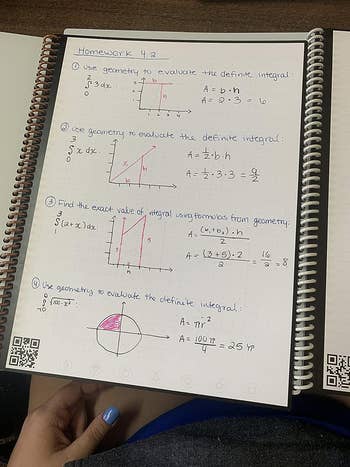 Homework 4.2
① Use geometry to evaluate the definite integral:
2
∫ 3 dx
0
A = b·h
A = 2·3 = 6
② Use geometry to evaluate the definite integral:
3
∫ x dx
0
A = 1/2·b·h
A = 1/2·3·3 = 9/2
③ Find the exact value of integral using formulas from geometry:
3
∫ (2+x) dx
A = (b₁+b₂)·h / 2
A = (3+5)·2 / 2 = 16/2 = 8
④ Use geometry to evaluate the definite integral:
0
∫ √100-x²
-10
A = πr²
A = 100π/4 = 25π